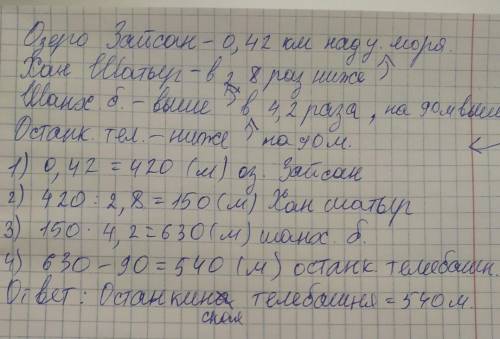 Озеро Зайсан - 0,42 км над у. моря.
Хан Шатыр - в 2,8 раз ниже
Шанх б. - выше в 4,2 раза, на 90м выш
Останк. тел. - ниже на 90м.
1) 0,42 = 420 (м) оз. Зайсан
2) 420 : 2,8 = 150 (м) Хан шатыр
3) 150 · 4,2 = 630 (м) шанх. б.
4) 630 - 90 = 540 (м) останк. телебашн.
Ответ: Останкинская телебашня = 540 м.